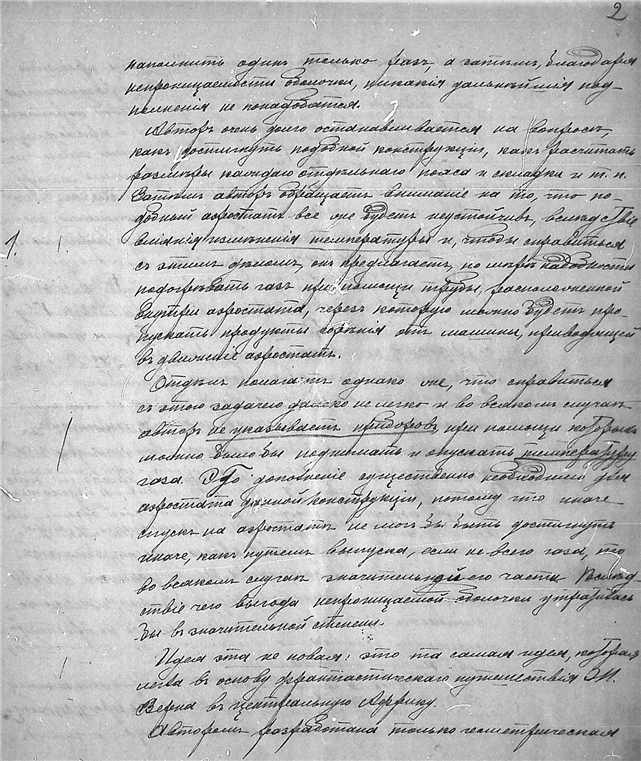 2
наполнить одинъ только разъ, а затѣмъ, благодаря
непроницаемости оболочки, никакія дальнѣйшія под-
полненія не понадобятся.
Авторъ очень долго останавливается на вопросѣ,
какъ достигнуть подобной конструкціи, какъ расчитать
размѣры каждаго отдѣльнаго пояса и складки и т. п.
Затѣмъ авторъ обращаетъ вниманіе на то, что по-
добный аэростатъ все же будетъ неустойчивъ, вслѣдствіе
1. вліянія измѣненія температуры и, чтобы справиться
съ этимъ дѣломъ, онъ предлагаетъ, по мѣрѣ надобности
подогрѣвать газъ при помощи трубы, расположенной
внутри аэростата, черезъ которую можно будетъ про-
пускать продукты горѣнія отъ машины, приводящей
въ движеніе аэростатъ.
Отдѣлъ полагаетъ однако же, что справиться
съ этою задачею далеко не легко и во всякомъ случаѣ
авторъ не указываетъ приборовъ, при помощи которыхъ
можно было бы поднимать и опускать температуру
газа. Это дополненіе существенно необходимо для
аэростата данной конструкціи, потому что иначе
спускъ на аэростатѣ не могъ бы быть достигнутъ
иначе, какъ путемъ выпуска, если не всего газа, то
во всякомъ случаѣ значительной его части. Вслѣд-
ствіе чего выгода непроницаемой оболочки утратилась
бы въ значительной степени.
Идея эта не новая: это та самая идея, которая
легла въ основу фантастическаго путешествія Ж.
Верна въ центральную Африку.
Авторомъ разработана только геометрическая